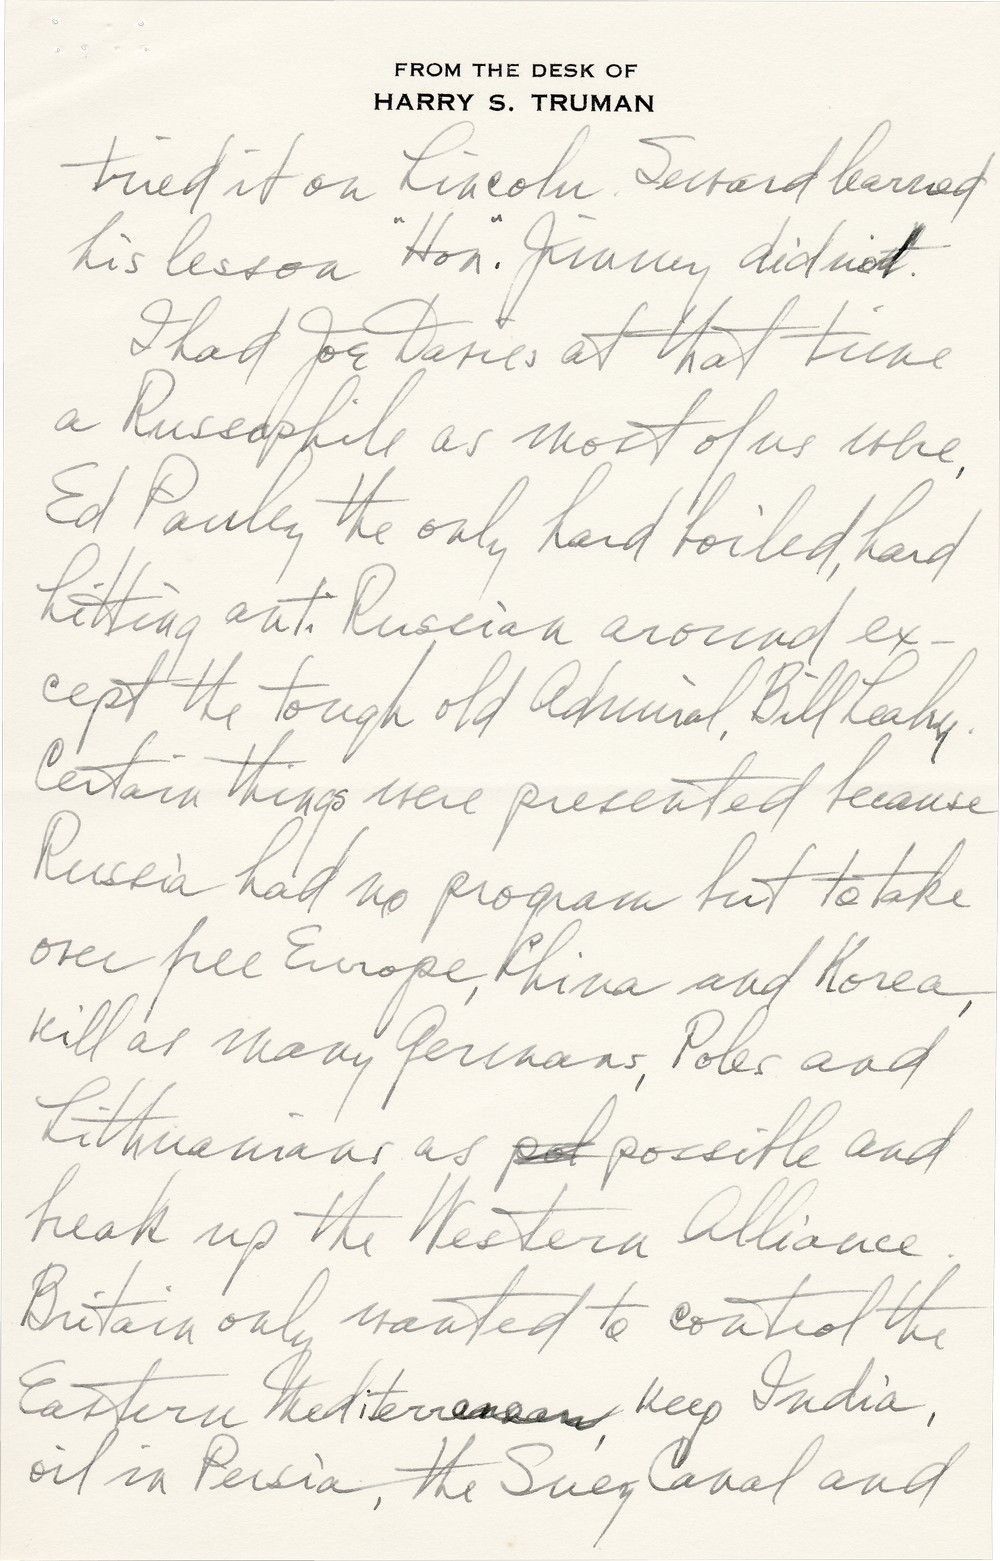 FROM THE DESK OF
HARRY S. TRUMAN
tried it on Lincoln. Seward learned
his lesson "Hon". Jimmey did not.
I had Joe Davies at that time
a Russophile as most of us were,
Ed Pauley the only hard boiled, hard
hitting anti Russian around ex-
cept the tough old Admiral, Bill Leahy.
Certain things were presented because
Russia had no program but to take
over free Europe, China and Korea,
kill as many Germans, Poles and
Lithuanians as pol possible and
break up the Western Alliance.
Britain only wanted to control the
Eastern Mediterranean, keep India,
oil in Persia, the Suez Canal and